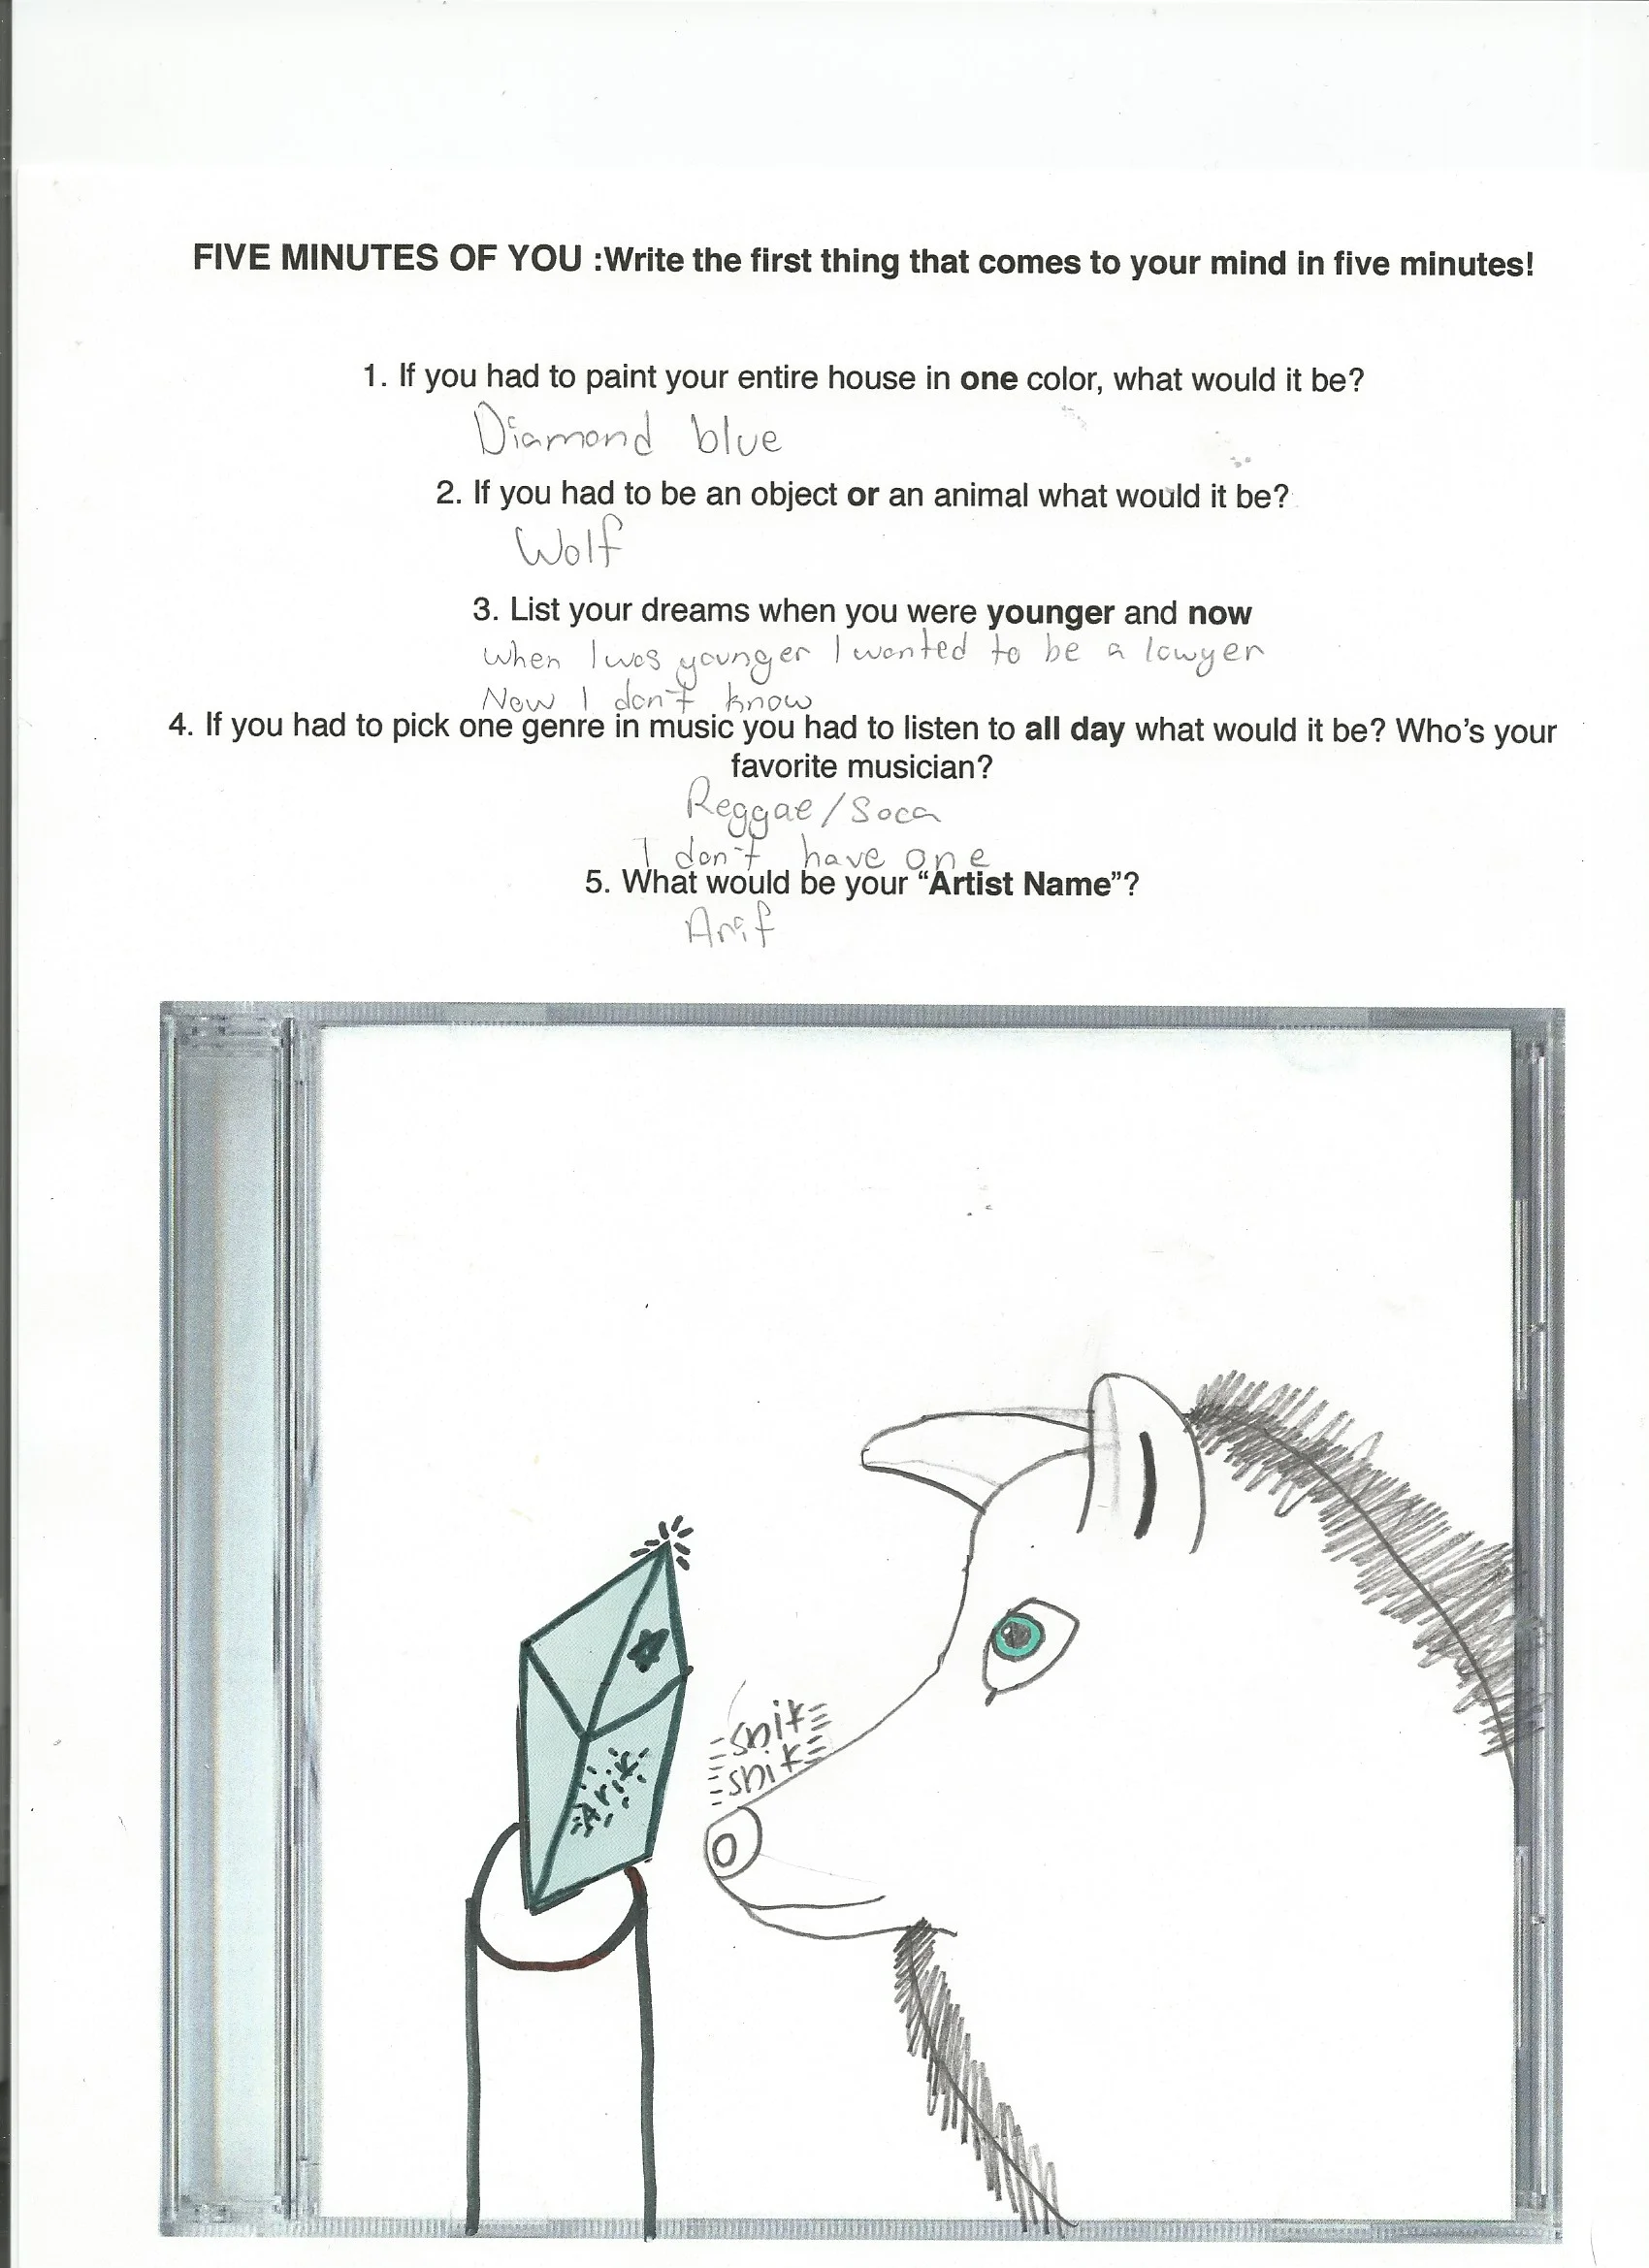 FIVE MINUTES OF YOU :Write the first thing that comes to your mind in five minutes!
1. If you had to paint your entire house in one color, what would it be?
Diamond blue
2. If you had to be an object or an animal what would it be?
Wolf
3. List your dreams when you were younger and now
When I was younger I wanted to be a lawyer
Now I don't know
4. If you had to pick one genre in music you had to listen to all day what would it be? Who's your
favorite musician?
Reggae/Soca
I don't have one
5. What would be your “Artist Name”?
Arif
snik
snik